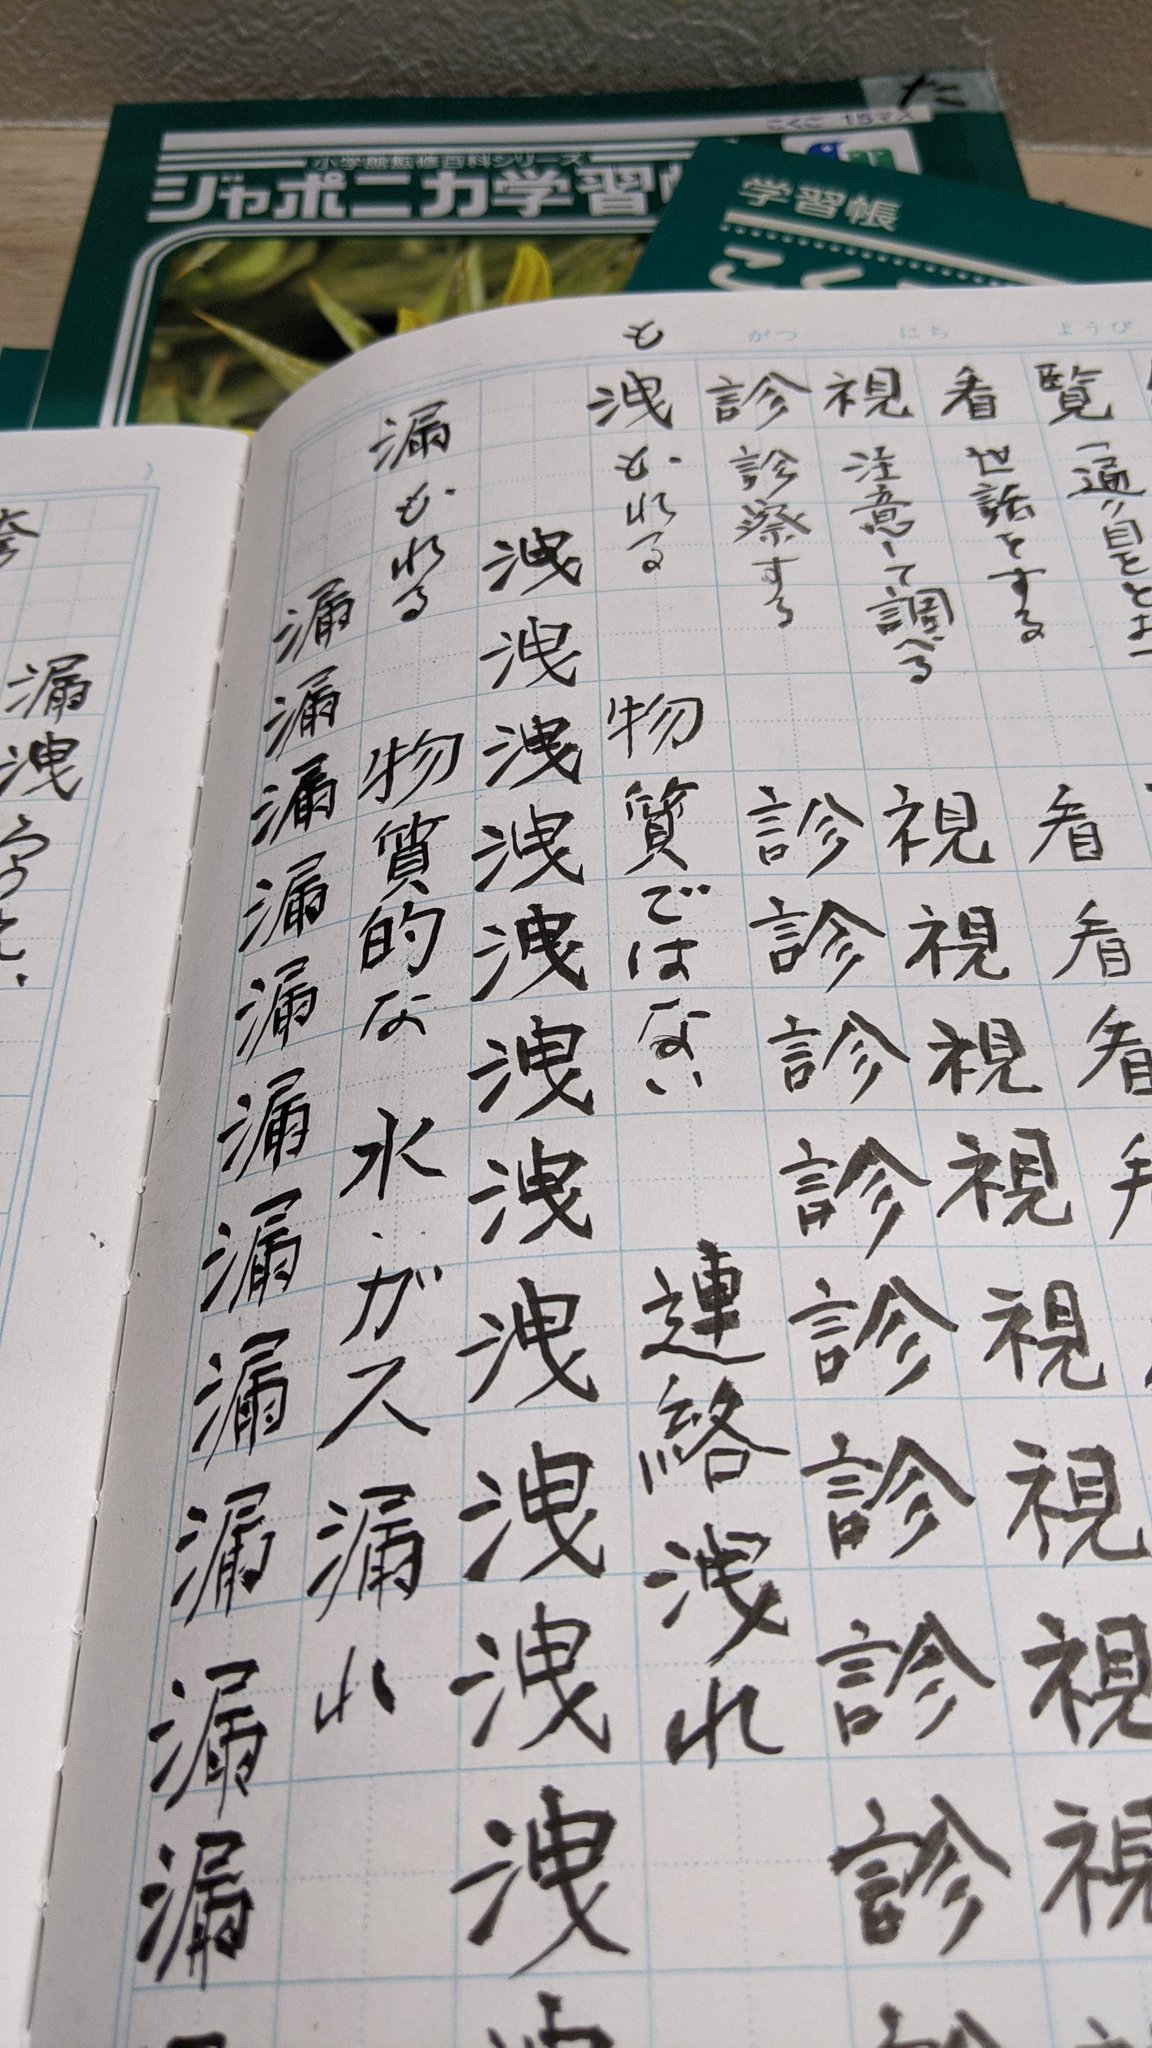 た
こくご 15マス
小学館監修百科シリーズ
ジャポニカ学習
学習帳
こく
がつ にち ようび
覧 一通り目をとお
看 世話をする
看看看
視 注意して調べる
視視視視視視視視
診 診察する
診診診診診診診診
も
洩 もれる 物質ではない 連絡洩れ
洩洩洩洩洩洩洩洩洩洩洩
漏 もれる 物質的な 水・ガス漏れ
漏漏漏漏漏漏漏漏漏漏漏
漏洩